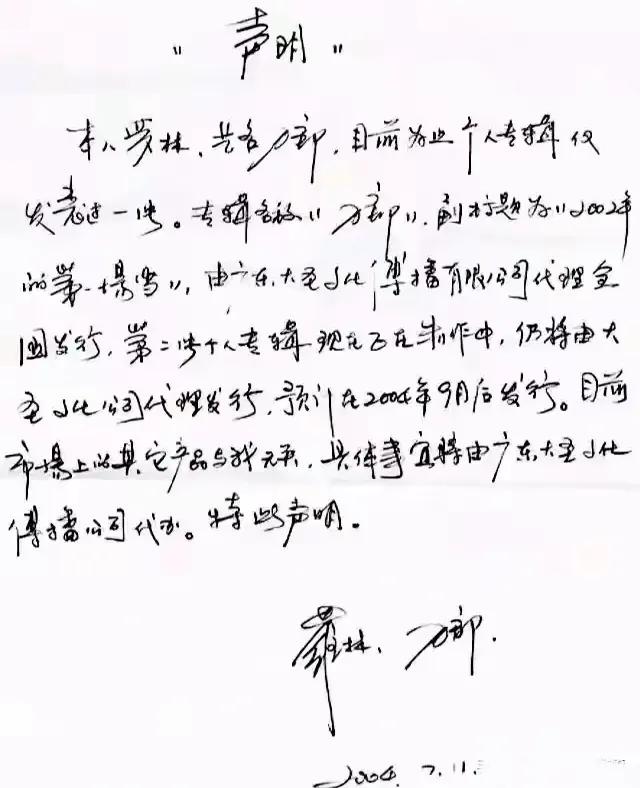 "声明"
本人罗林、艺名刀郎,目前为止个人专辑仅
发表过一张。专辑名称"刀郎",副标题为"2002年
的第一场雪",由广东大圣文化傳播有限公司代理全
国发行,第二张个人专辑现在正在制作中,仍将由大
圣文化公司代理发行,预计在2004年9月后发行。目前
市场上的其它产品与我无关,具体事宜将由广东大圣文化
傳播公司代办。特此声明。
羅林、刀郎.
2004. 7. 11.